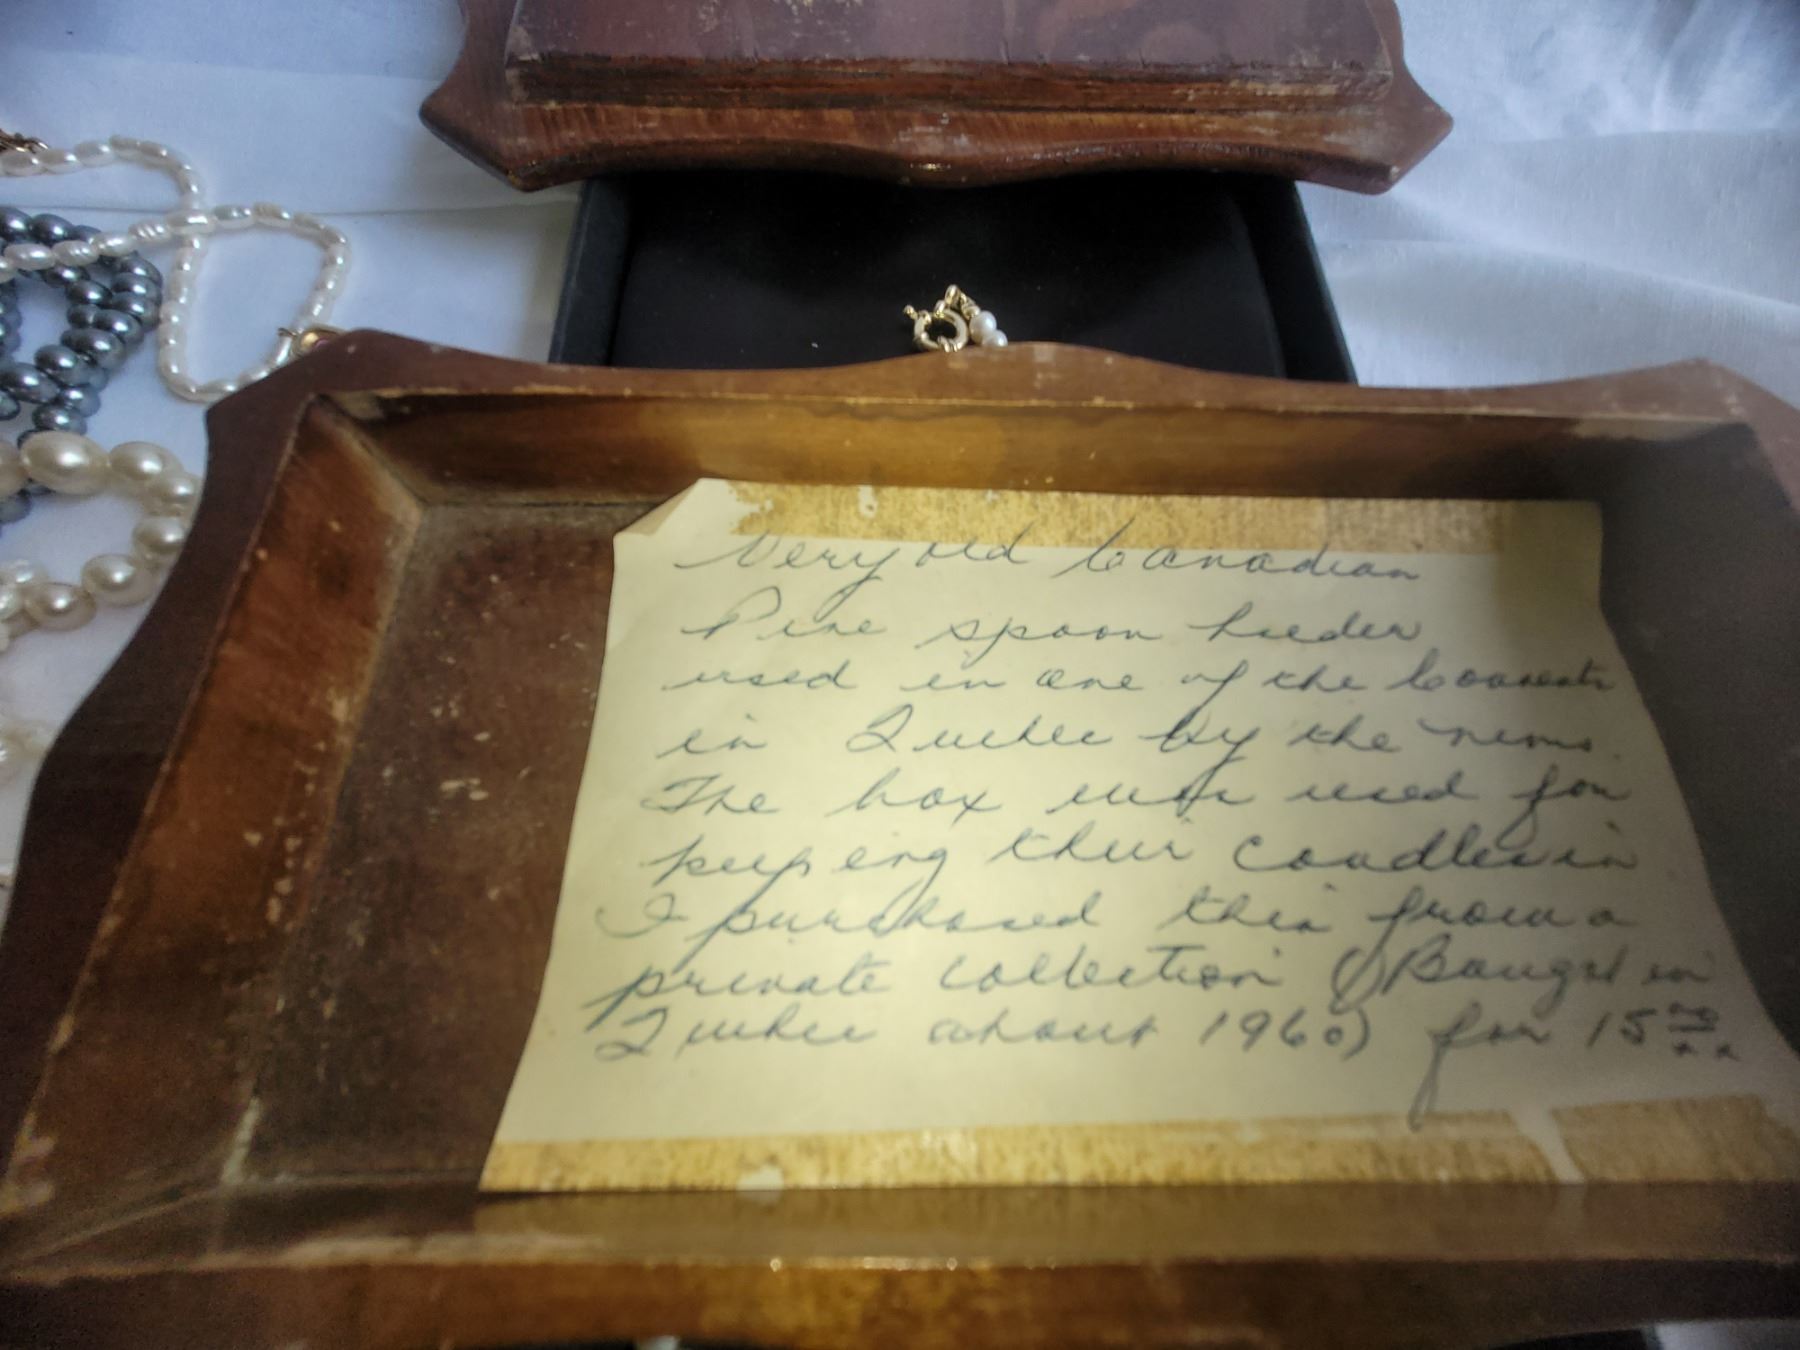 Very old Canadian
Pine spoon holder
used in one of the Convents
in Quebec by the nuns.
The box was used for
keeping their candles in
I purchased this from a
private collection (Bought in
Quebec about 1960) for 15